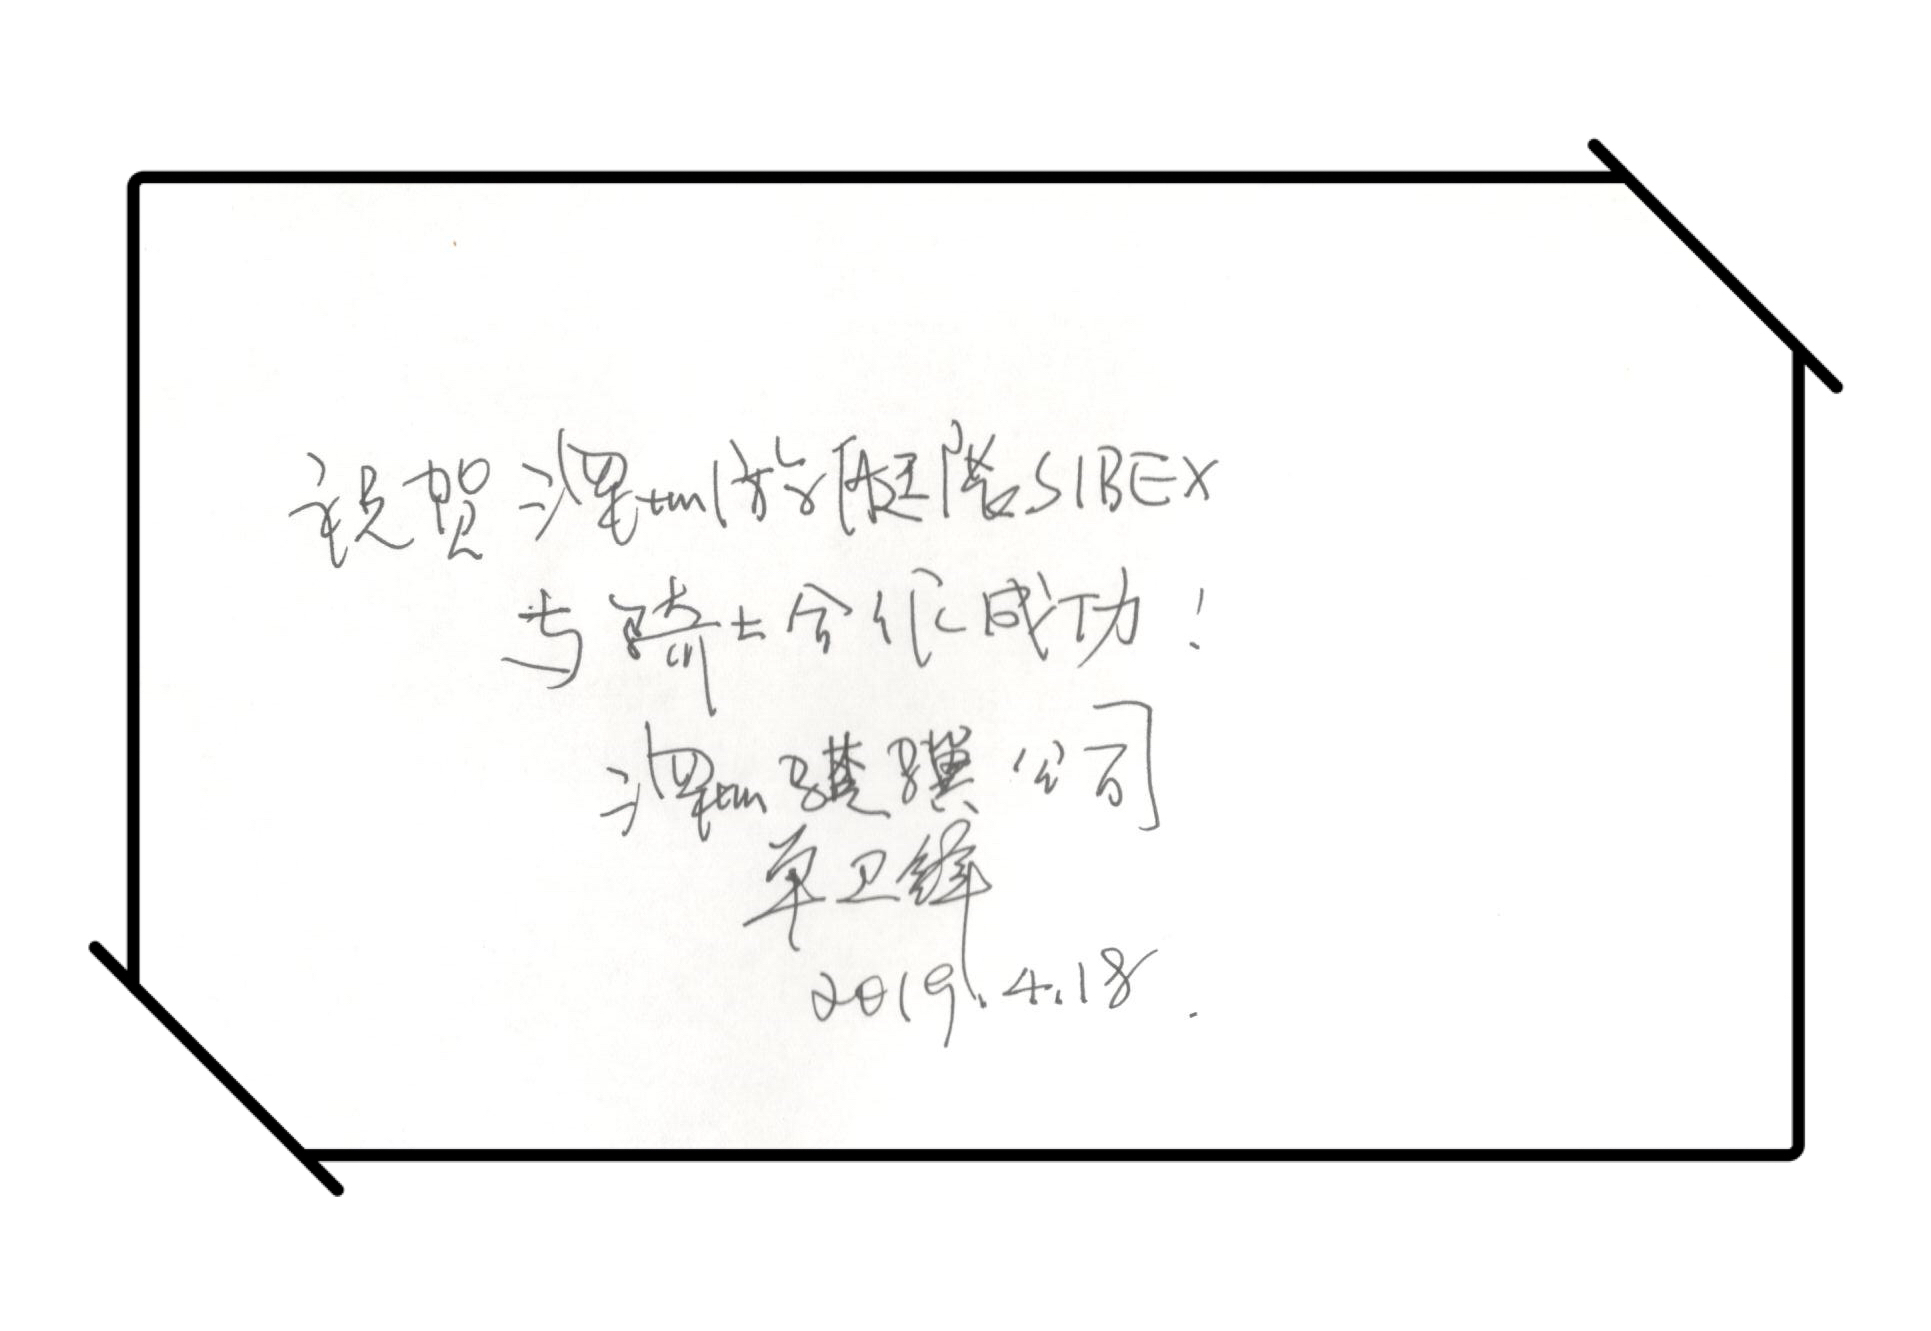 祝贺深圳游艇展SIBEX
与骑士合作成功!
深圳骐骥公司
单卫锋
2019.4.18.